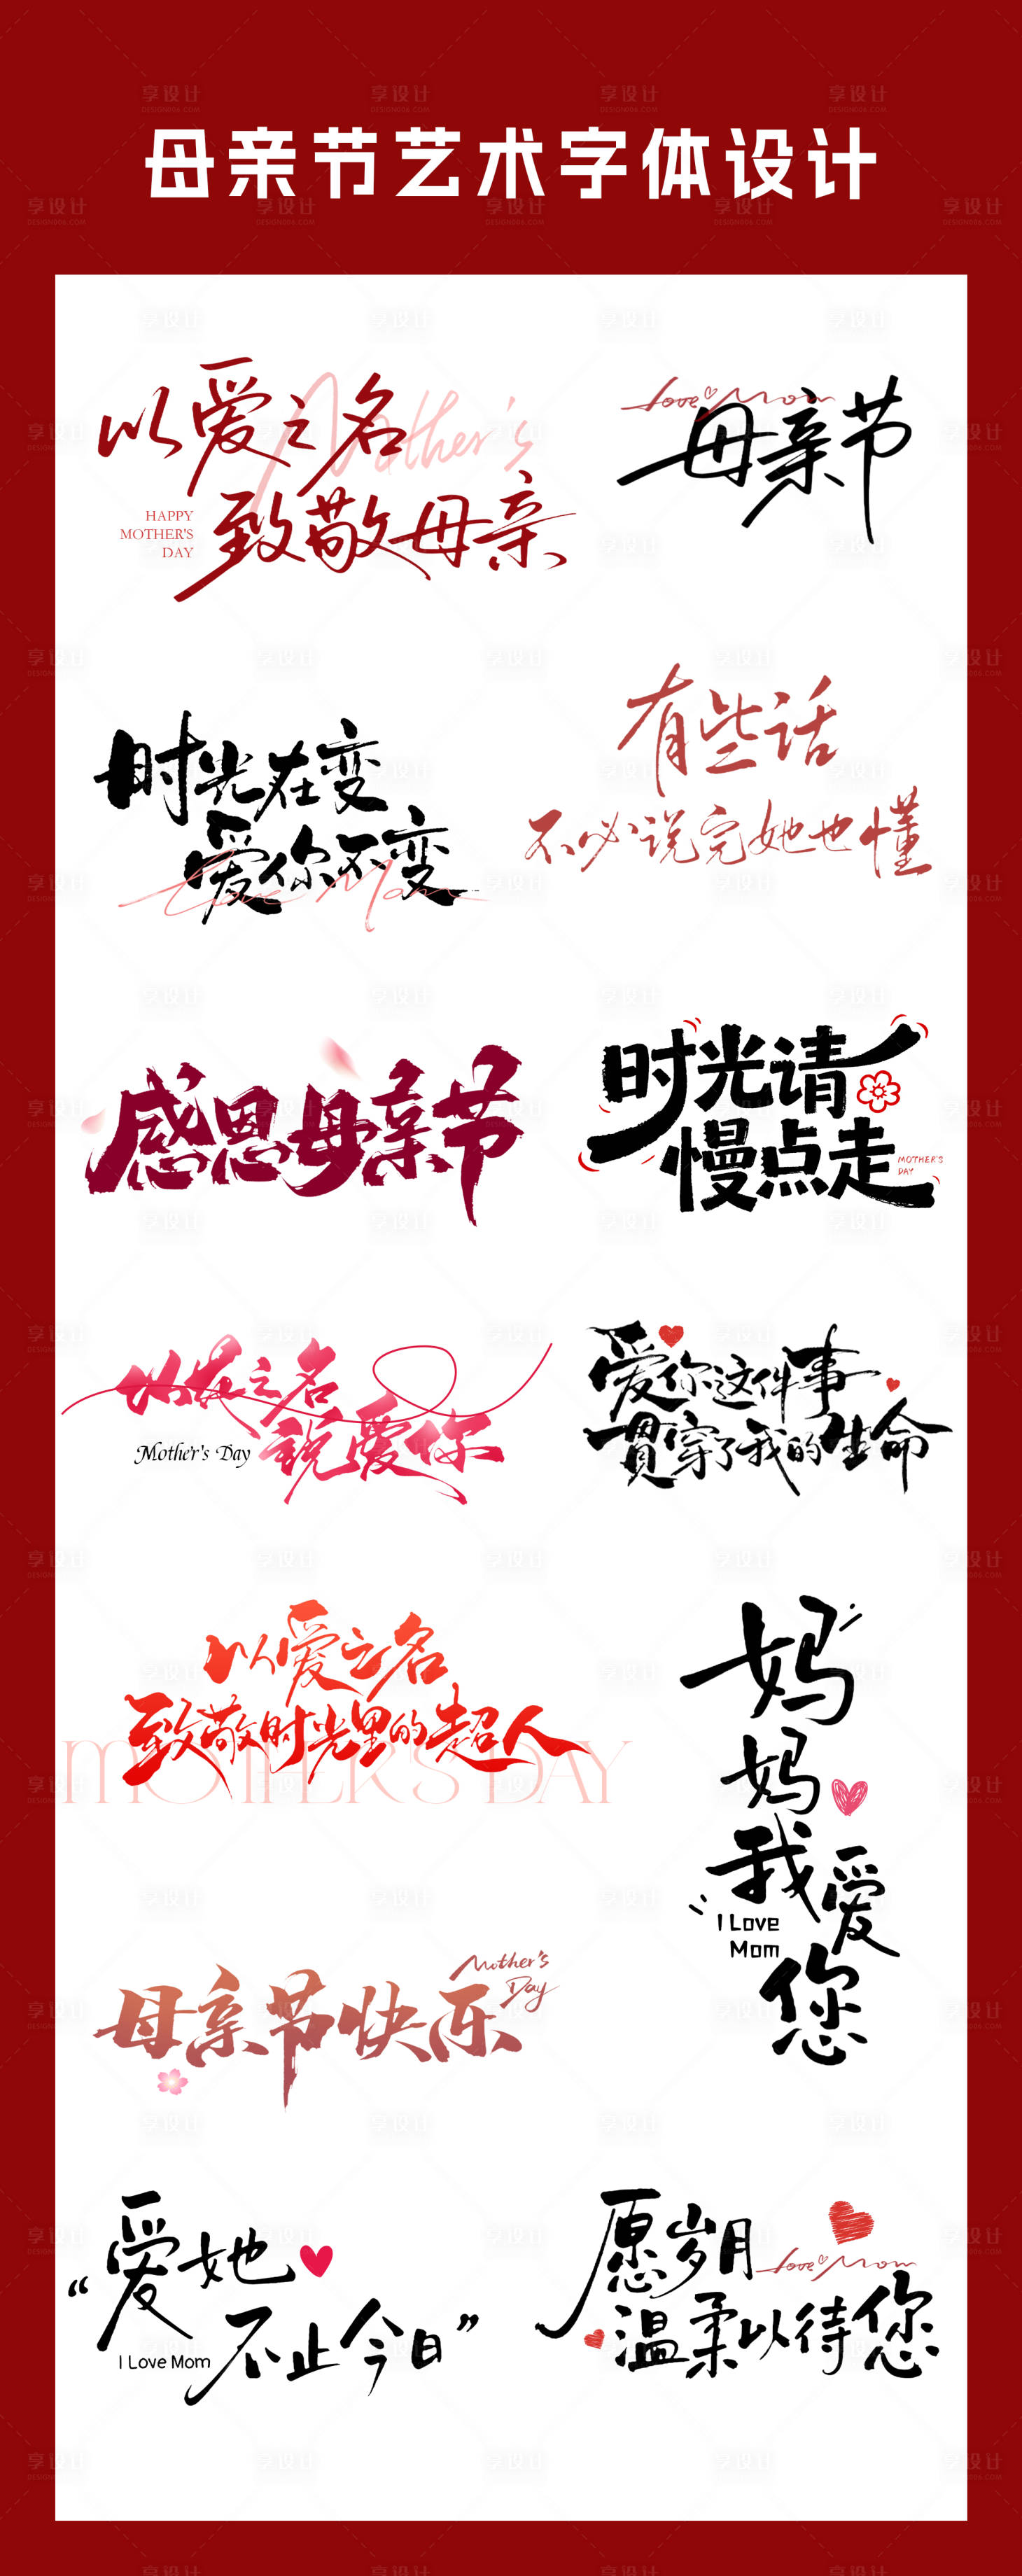 母亲节艺术字体设计
以爱之名
Mother's
致敬母亲
HAPPY
MOTHER'S
DAY
love Mom
母亲节
时光在变
爱你不变
Love Mom
有些话
不必说完她也懂
感恩母亲节
时光请
慢点走
MOTHER'S
DAY
以爱之名
说爱你
Mother's Day
爱你这件事
贯穿了我的生命
以爱之名
致敬时光里的超人
MOTHER'S DAY
妈
妈
我爱
您
I Love
Mom
母亲节快乐
Mother's
Day
“爱她
不止今日”
I Love Mom
愿岁月
love Mom
温柔以待您
享设计
DESIGN006.COM